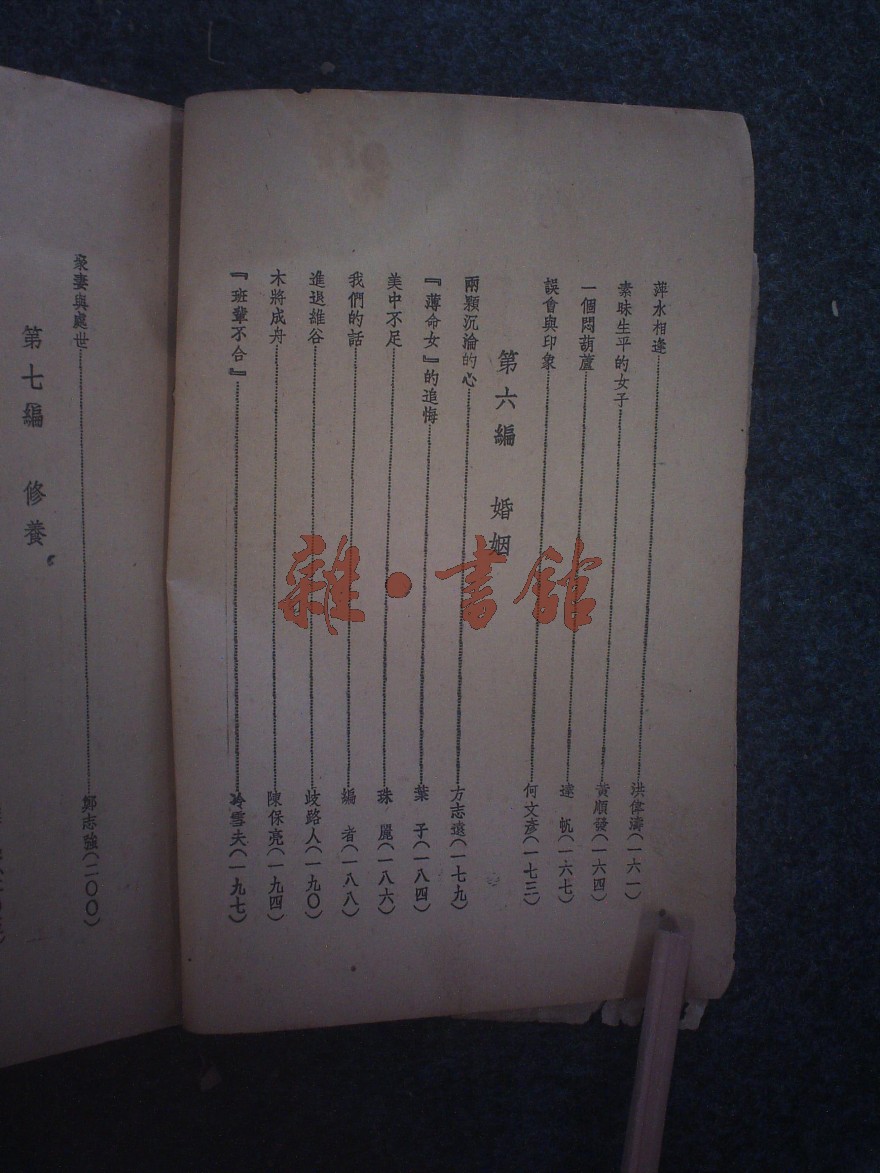 萍水相逢……洪偉濤(一六一)
素昧生平的女子……黃順發(一六四)
一個悶葫蘆……達帆(一六七)
誤會與印象……何文彥(一七三)
第六編 婚姻
兩顆沉淪的心……方志遠(一七九)
『薄命女』的追悔……葉子(一八四)
美中不足……珠麗(一八六)
我們的話……編者(一八八)
進退維谷……歧路人(一九〇)
木將成舟……陳保亮(一九四)
『班輩不合』……冷雪夫(一九七)
妻與處世……鄭志強(二〇〇)
第七編 修養
雜·書館